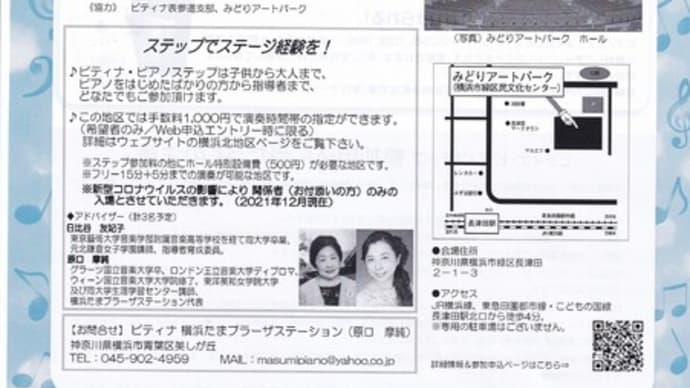 (協力) ピティナ表参道支部、みどりアートパーク
ステップでステージ経験を!
♪ピティナ・ピアノステップは子供から大人まで、
ピアノをはじめたばかりの方から指導者まで、
どなたでもご参加頂けます。
♪この地区では手数料1,000円で演奏時間帯の指定ができます。
(希望者のみ/Web申込エントリー時に限る)
詳細はウェブサイトの横浜北地区ページをご覧下さい。
※ステップ参加料の他にホール特別設備費(500円)が必要な地区です。
※フリー15分+5分までの演奏が可能な地区です。
※新型コロナウイルスの影響により 関係者(お付添いの方)のみの
入場とさせていただきます。(2021年12月現在)
◆アドバイザー(計3名予定)
日比谷 友妃子
東京藝術大学音楽学部附属音楽高等学校を経て同大学卒業、
元北鎌倉女子学園講師、指導者育成委員。
原口 摩純
グラーツ国立音楽大学卒、ロンドン王立音楽大学ディプロマ、
ウィーン国立音楽大学大学院修了、東洋英和女学院大学
及び同大学生涯学習センター講師、
横浜たまプラーザステーション代表
【お問合せ】ピティナ 横浜たまプラーザステーション(原口 摩純)
神奈川県横浜市青葉区美しが丘
TEL:045-902-4959 MAIL:masumipiano@yahoo.co.jp
(写真)みどりアートパーク ホール
みどりアートパーク
(横浜市緑区民文化センター)
マルエツ
レンタカー
みずほ銀行
長津田駅
●会場住所
神奈川県横浜市緑区長津田
2-1-3
●アクセス
JR横浜線、東急田園都市線・こどもの国線
長津田駅北口から徒歩4分。
※専用の駐車場はございません。
詳細情報&参加申込ページはこちら⇒